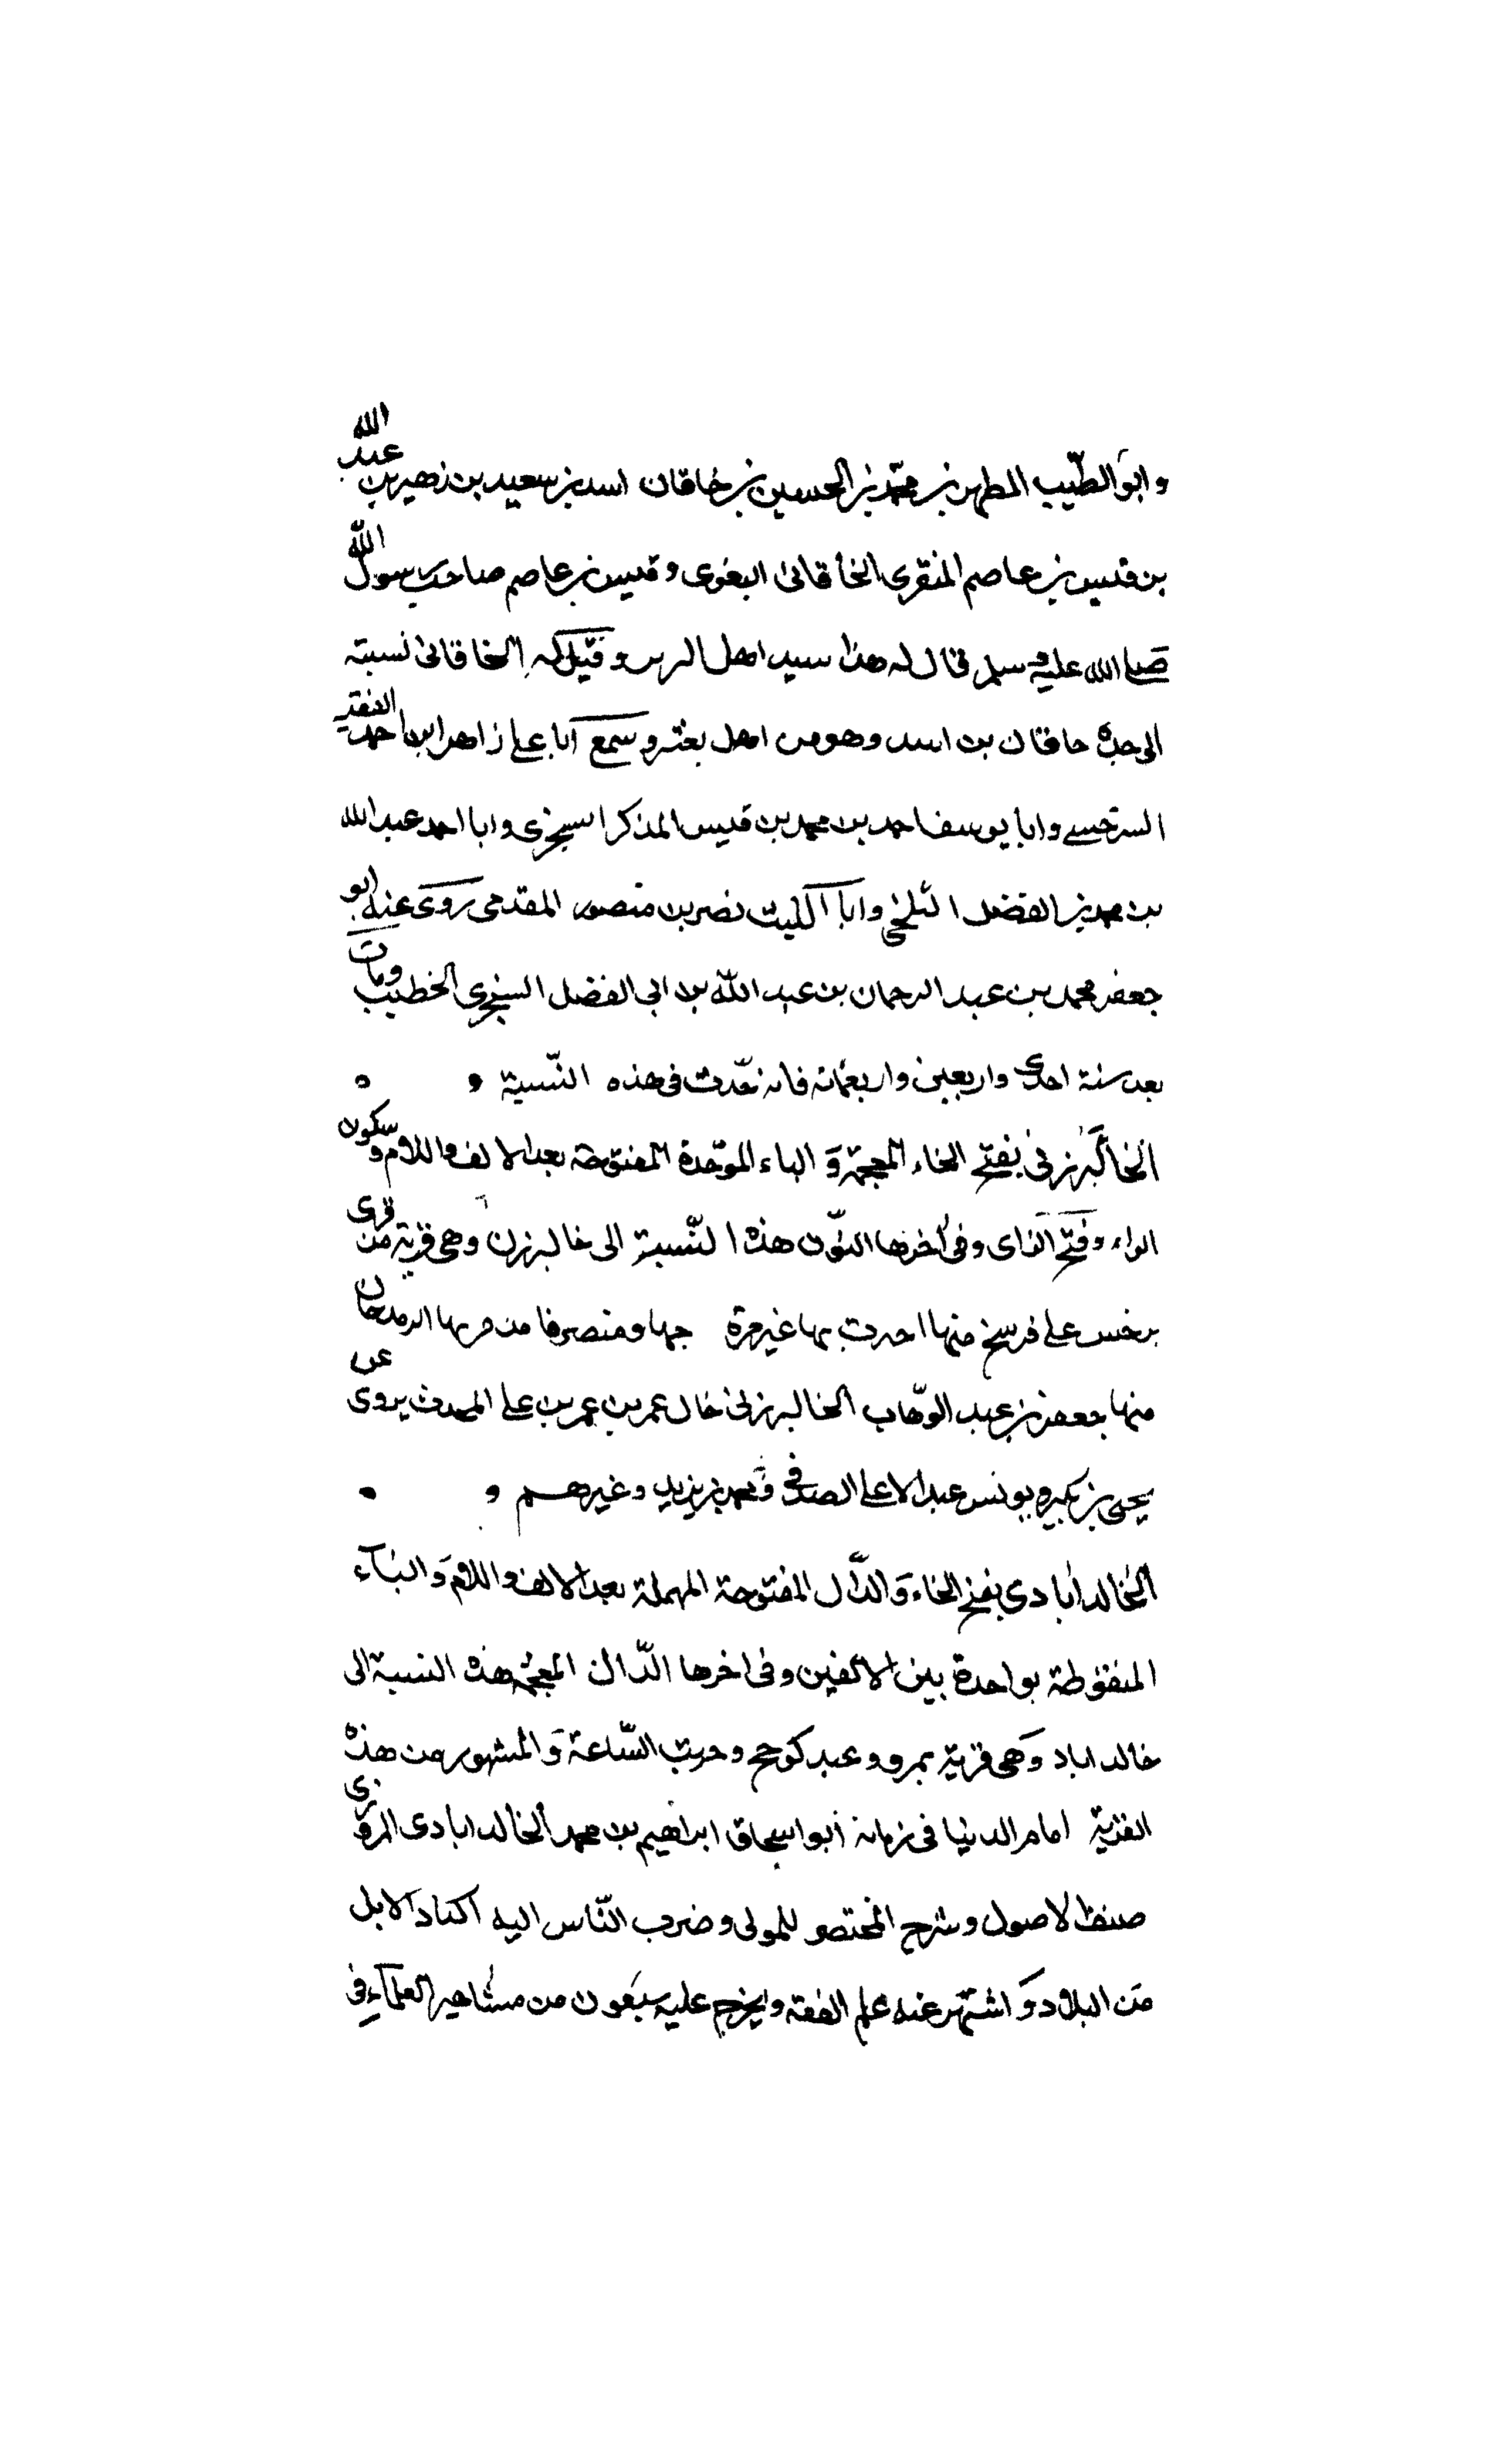 وابو الطيّب المطهر بن محمّد بن الحسين بن خاقان اسد بن سعيد بن نصير بن عبد الله
بن قيس بن عاصم المنقرى الخاقانى البغوى وقيس بن عاصم صاحب رسول الله
صلى الله عليه وسلم فقال له هذا سيد اهل الوبر وقيل له الخاقانى نسبته
الى جده خاقان بن اسد وهو من اهل بغشور سمع ابا على زاهر ابن احمد الفقيه
السرخسى وابا يوسف احمد بن محمد بن قيس المذكر السجزى وابا احمد عبد الله
بن محمد بن الفضل البلخى وابا الليث نصر بن منصور المقدمى روى عنه ابو
جعفر محمد بن عبد الرحمان بن عبد الله بن ابى الفضل السجزى الخطيب ومات
بعد سنة احدى واربعين واربعمائه فانه حدث فى هذه النّسبة
الخالبرزنى بفتح الخاء المعجمة والباء الموحّدة المفتوحة بعد الالف واللام وسكون
الراء وفتح الزاى وفى اخرها النّون هذه النّسبة الى خالبرزن وهى قرية من قرى
سرخس على فرسخ منها اجزت بها غير مرة جها ومنصرفا من مربها
منها جعفر بن عبد الوهّاب الخالبرزنى خال عمر بن عمر بن على المحدث يروى عن
يحيى بن بكير ويونس عبد الاعلى الصدفى ومحمد بن يزيد وغيرهم
الخالداباذى بفتح الخاء والدّال المفتوحة المهملة بعد الالف واللام والباء
المنقوطة بواحدة بين الالفين وفى اخرها الدّال المعجمة هذه النسبة الى
خالد اباد وهى قرية بمرو وعبد كوحج وخربت السّاعة والمشهور من هذه
القرية امام الدنيا فى زمانه أبو اسحاق ابراهيم بن محمد الخالدابادى المروزى
صنف الاصول وشرح المختصر للمولى وضرب النّاس اليه اكباد الابل
من البلاد واشتهر عنه علم الفقه ويخرج عليه سبعون من مشاهير العلماء فى